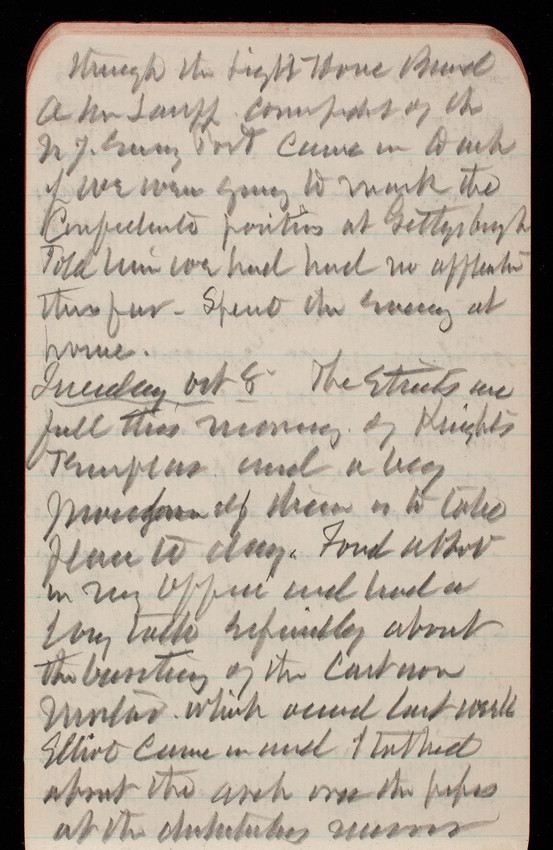 through the Light House Board
A Mr correspdt of the
N.Y. Eveng Post came in to ask
if we were going to mark the
Confederate position at Gettysburgh
Told him we had had no
thus far - Spent the Evening at
home.
Tuesday Oct 8 The streets are
full this morning of Knights
Templar and a big
procession of them is to take
place to day. Found Abbot
in my office and had a
long talk especially about
the bursting of the Cast iron
Mortar which occurred last week
Elliot came in and I talked
about the arch over the pipes
at the